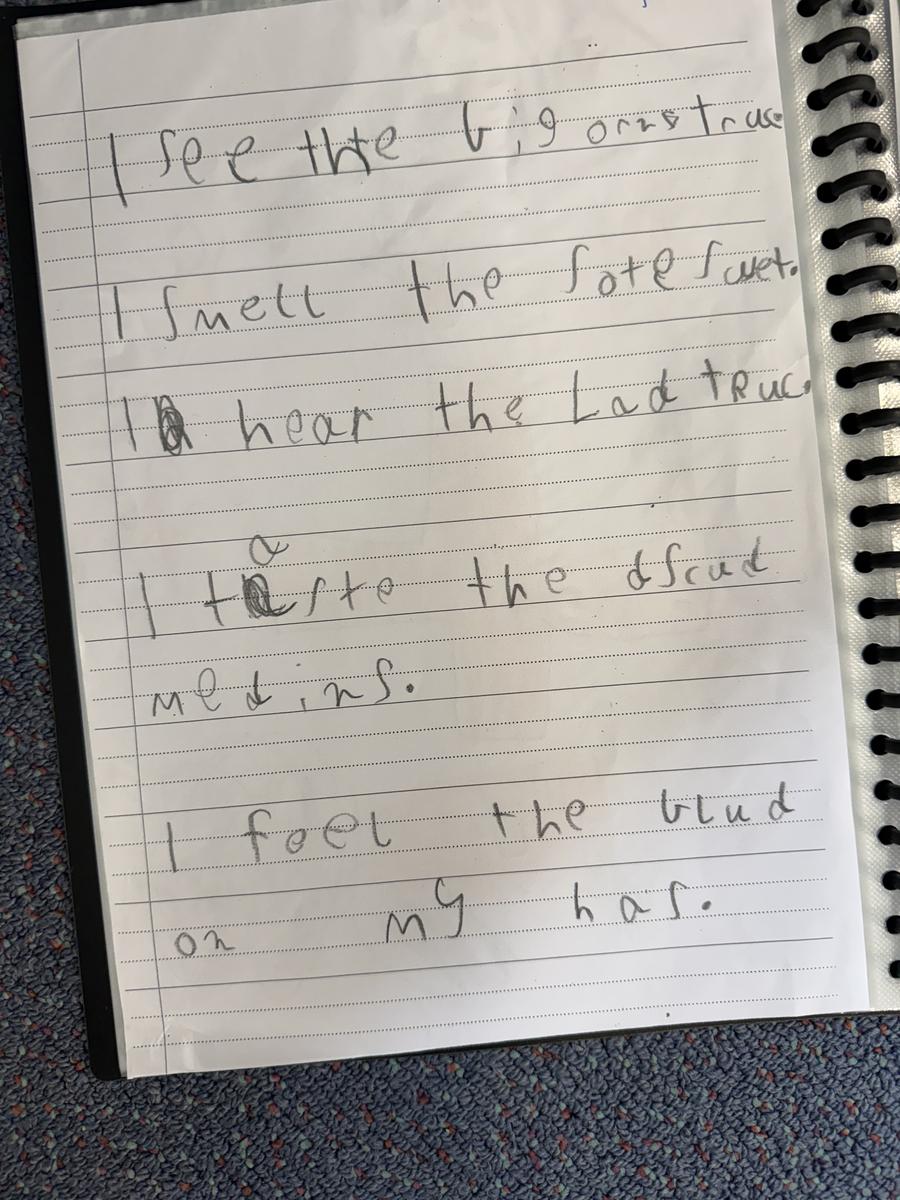 I see the big orns truc
I smell the sote swet.
I hear the Lad truc.
I taste the dscud
medins.
I feel the blud
on my has.